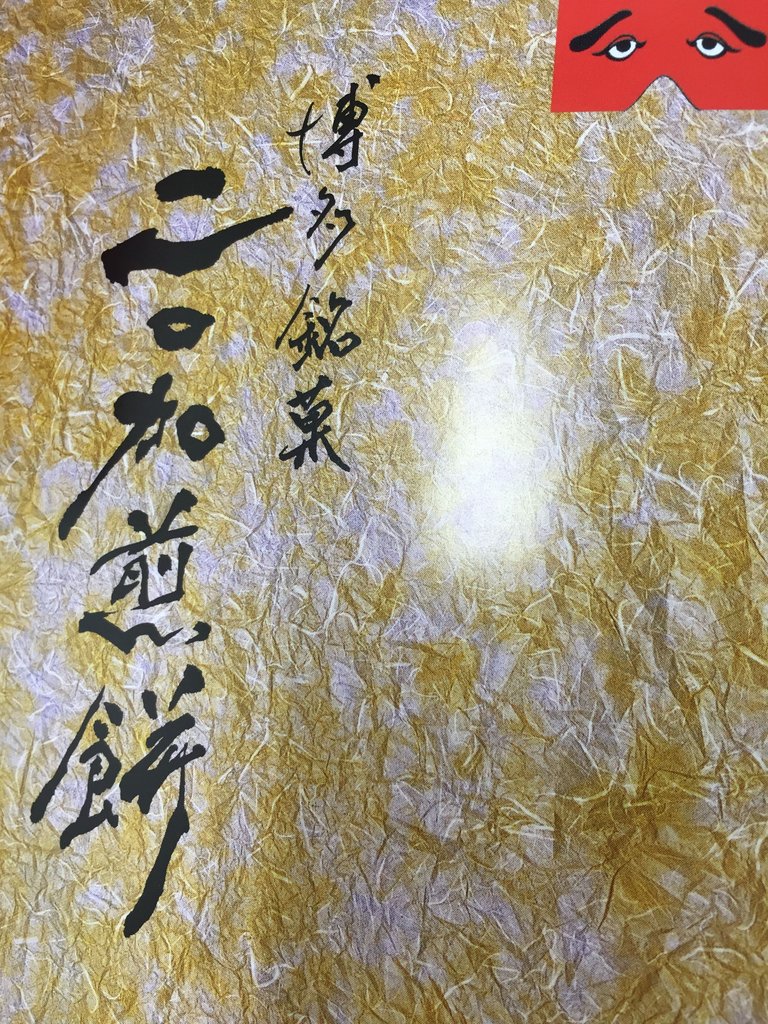 博多銘菓
二〇加煎餅